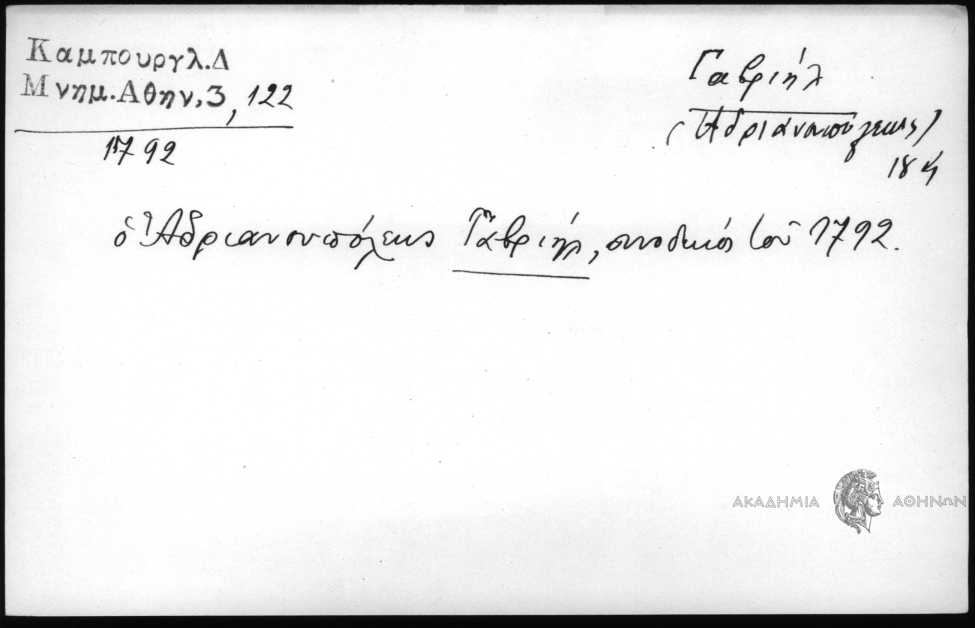 Καμπουργλ.Δ
Μνημ.Αθην,3, 122
1792
Γαβριήλ
(Ἀδριανουπόλεως)
18 η
ὁ Ἀδριανουπόλεως Γαβριήλ, συνοδικός τοῦ 1792.
ΑΚΑΔΗΜΙΑ ΑΘΗΝΩΝ